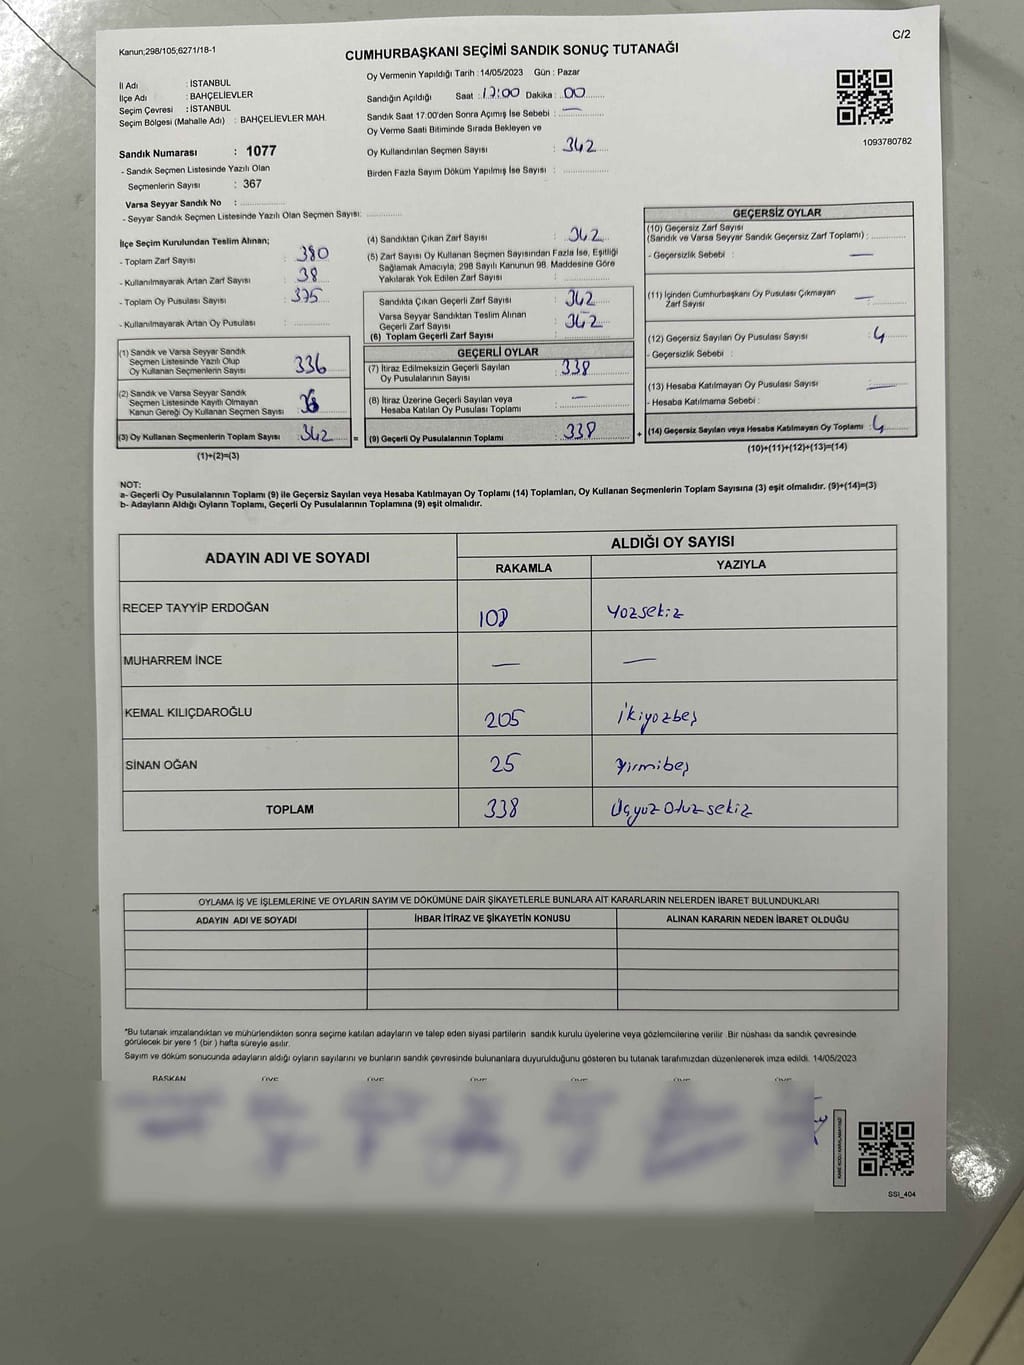 Kanun;298/105,6271/18-1
C/2
CUMHURBAŞKANI SEÇİMİ SANDIK SONUÇ TUTANAĞI
İl Adı : İSTANBUL
İlçe Adı : BAHÇELİEVLER
Seçim Çevresi : İSTANBUL
Seçim Bölgesi (Mahalle Adı) : BAHÇELİEVLER MAH.
Sandık Numarası : 1077
- Sandık Seçmen Listesinde Yazılı Olan
Seçmenlerin Sayısı : 367
Varsa Seyyar Sandık No :
- Seyyar Sandık Seçmen Listesinde Yazılı Olan Seçmen Sayısı:
Oy Vermenin Yapıldığı Tarih : 14/05/2023 Gün : Pazar
Sandığın Açıldığı Saat : 17:00 Dakika : 00
Sandık Saat 17.00'den Sonra Açımış İse Sebebi : —
Oy Verme Saati Bitiminde Sırada Bekleyen ve
Oy Kullandırılan Seçmen Sayısı : 342
Birden Fazla Sayım Döküm Yapılmış İse Sayısı :
1093780782
İlçe Seçim Kurulundan Teslim Alınan;
- Toplam Zarf Sayısı : 380
- Kullanılmayarak Artan Zarf Sayısı : 38
- Toplam Oy Pusulası Sayısı : 375
- Kullanılmayarak Artan Oy Pusulası :
(1) Sandık ve Varsa Seyyar Sandık
Seçmen Listesinde Yazılı Olup
Oy Kullanan Seçmenlerin Sayısı : 336
(2) Sandık ve Varsa Seyyar Sandık
Seçmen Listesinde Kayıtlı Olmayan
Kanun Gereği Oy Kullanan Seçmen Sayısı :
(3) Oy Kullanan Seçmenlerin Toplam Sayısı : 342
(1)+(2)=(3)
(4) Sandıktan Çıkan Zarf Sayısı : 342
(5) Zarf Sayısı Oy Kullanan Seçmen Sayısından Fazla İse, Eşitliği
Sağlamak Amacıyla; 298 Sayılı Kanunun 98. Maddesine Göre
Yakılarak Yok Edilen Zarf Sayısı :
Sandıkta Çıkan Geçerli Zarf Sayısı : 342
Varsa Seyyar Sandıktan Teslim Alınan
Geçerli Zarf Sayısı : 342
(6) Toplam Geçerli Zarf Sayısı
GEÇERLİ OYLAR
(7) İtiraz Edilmeksizin Geçerli Sayılan
Oy Pusulalarının Sayısı : 338
(8) İtiraz Üzerine Geçerli Sayılan veya
Hesaba Katılan Oy Pusulası Toplamı : —
= (9) Geçerli Oy Pusulalarının Toplamı : 338
GEÇERSİZ OYLAR
(10) Geçersiz Zarf Sayısı
(Sandık ve Varsa Seyyar Sandık Geçersiz Zarf Toplamı) :
- Geçersizlik Sebebi : —
(11) İçinden Cumhurbaşkanı Oy Pusulası Çıkmayan
Zarf Sayısı : —
(12) Geçersiz Sayılan Oy Pusulası Sayısı : 4
- Geçersizlik Sebebi :
(13) Hesaba Katılmayan Oy Pusulası Sayısı : —
- Hesaba Katılmama Sebebi :
+ (14) Geçersiz Sayılan veya Hesaba Katılmayan Oy Toplamı : 4
(10)+(11)+(12)+(13)=(14)
NOT:
a- Geçerli Oy Pusulalarının Toplamı (9) ile Geçersiz Sayılan veya Hesaba Katılmayan Oy Toplamı (14) Toplamları, Oy Kullanan Seçmenlerin Toplam Sayısına (3) eşit olmalıdır. (9)+(14)=(3)
b- Adayların Aldığı Oyların Toplamı, Geçerli Oy Pusulalarının Toplamına (9) eşit olmalıdır.
ADAYIN ADI VE SOYADI
ALDIĞI OY SAYISI
RAKAMLA YAZIYLA
RECEP TAYYİP ERDOĞAN 108 Yüzsekiz
MUHARREM İNCE — —
KEMAL KILIÇDAROĞLU 205 ikiyüzbeş
SİNAN OĞAN 25 Yirmibeş
TOPLAM 338 Üçyüz Otuz sekiz
OYLAMA İŞ VE İŞLEMLERİNE VE OYLARIN SAYIM VE DÖKÜMÜNE DAİR ŞİKAYETLERLE BUNLARA AİT KARARLARIN NELERDEN İBARET BULUNDUKLARI
ADAYIN ADI VE SOYADI İHBAR İTİRAZ VE ŞİKAYETİN KONUSU ALINAN KARARIN NEDEN İBARET OLDUĞU
*Bu tutanak imzalandıktan ve mühürlendikten sonra seçime katılan adayların ve talep eden siyasi partilerin sandık kurulu üyelerine veya gözlemcilerine verilir .Bir nüshası da sandık çevresinde
görülecek bir yere 1 (bir ) hafta süreyle asılır.
Sayım ve döküm sonucunda adayların aldığı oyların sayılarını ve bunların sandık çevresinde bulunanlara duyurulduğunu gösteren bu tutanak tarafımızdan düzenlenerek imza edildi. 14/05/2023
BAŞKAN ÜYE ÜYE ÜYE ÜYE ÜYE ÜYE
SSI_404